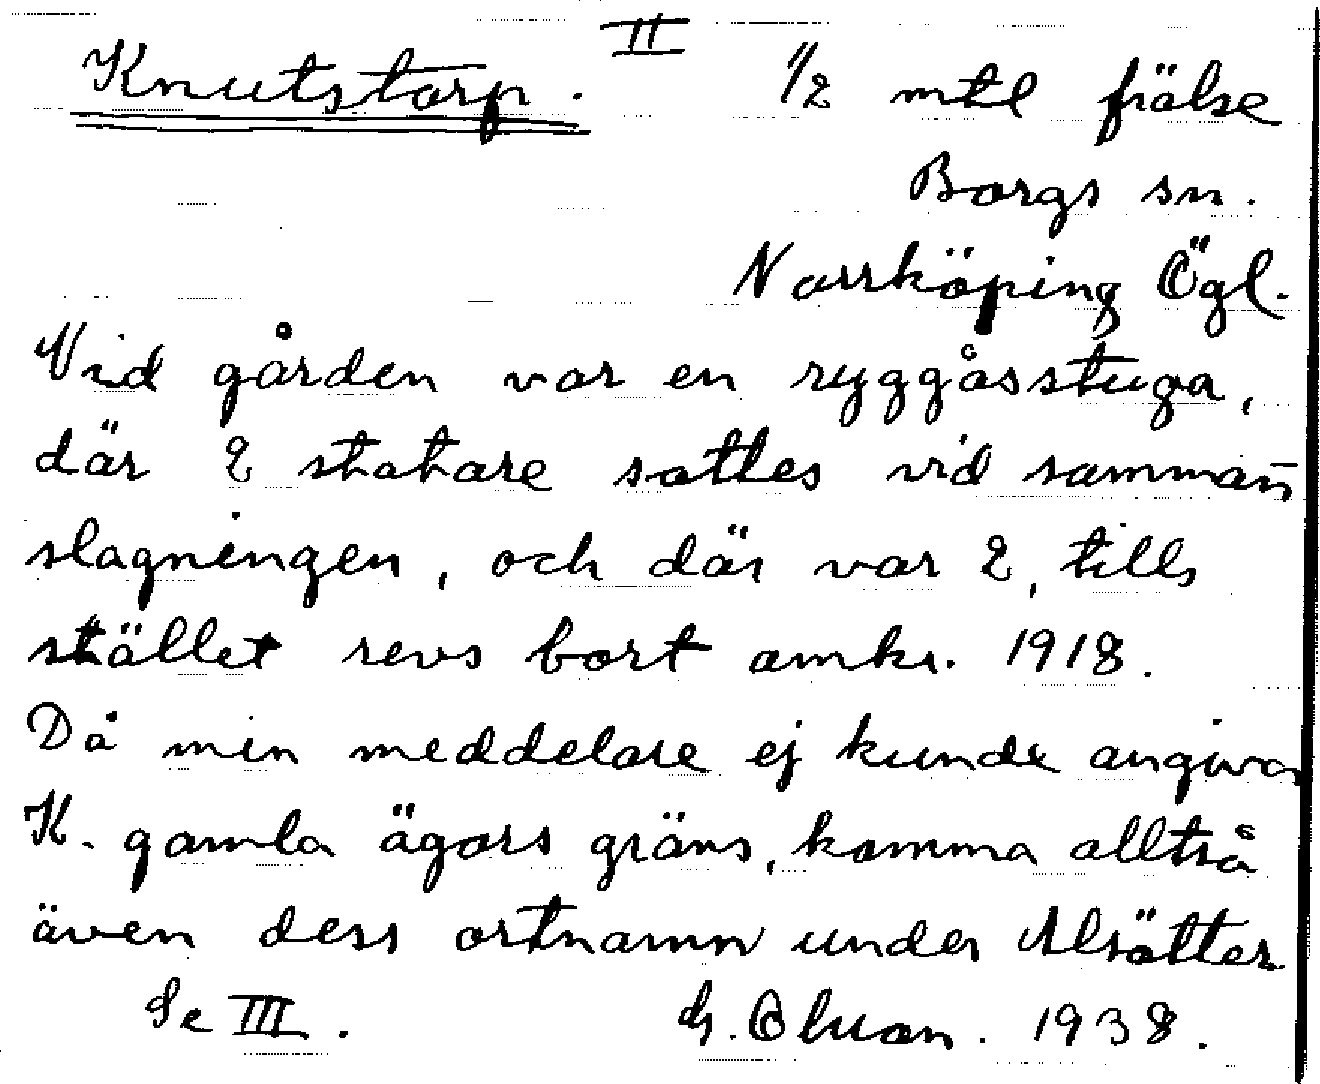 Knutstorp. II 1/2 mtl frälse
Borgs sn.
Norrköping Ögl.
Vid gården var en ryggåsstuga,
där 2 statare sattes vid samman
slagningen, och där var 2, tills
stället revs bort omkr. 1918.
Då min meddelare ej kunde angiva
K. gamla ägors gräns, komma alltså
även dess ortnamn under Alsätter
Se III. G. 1938.